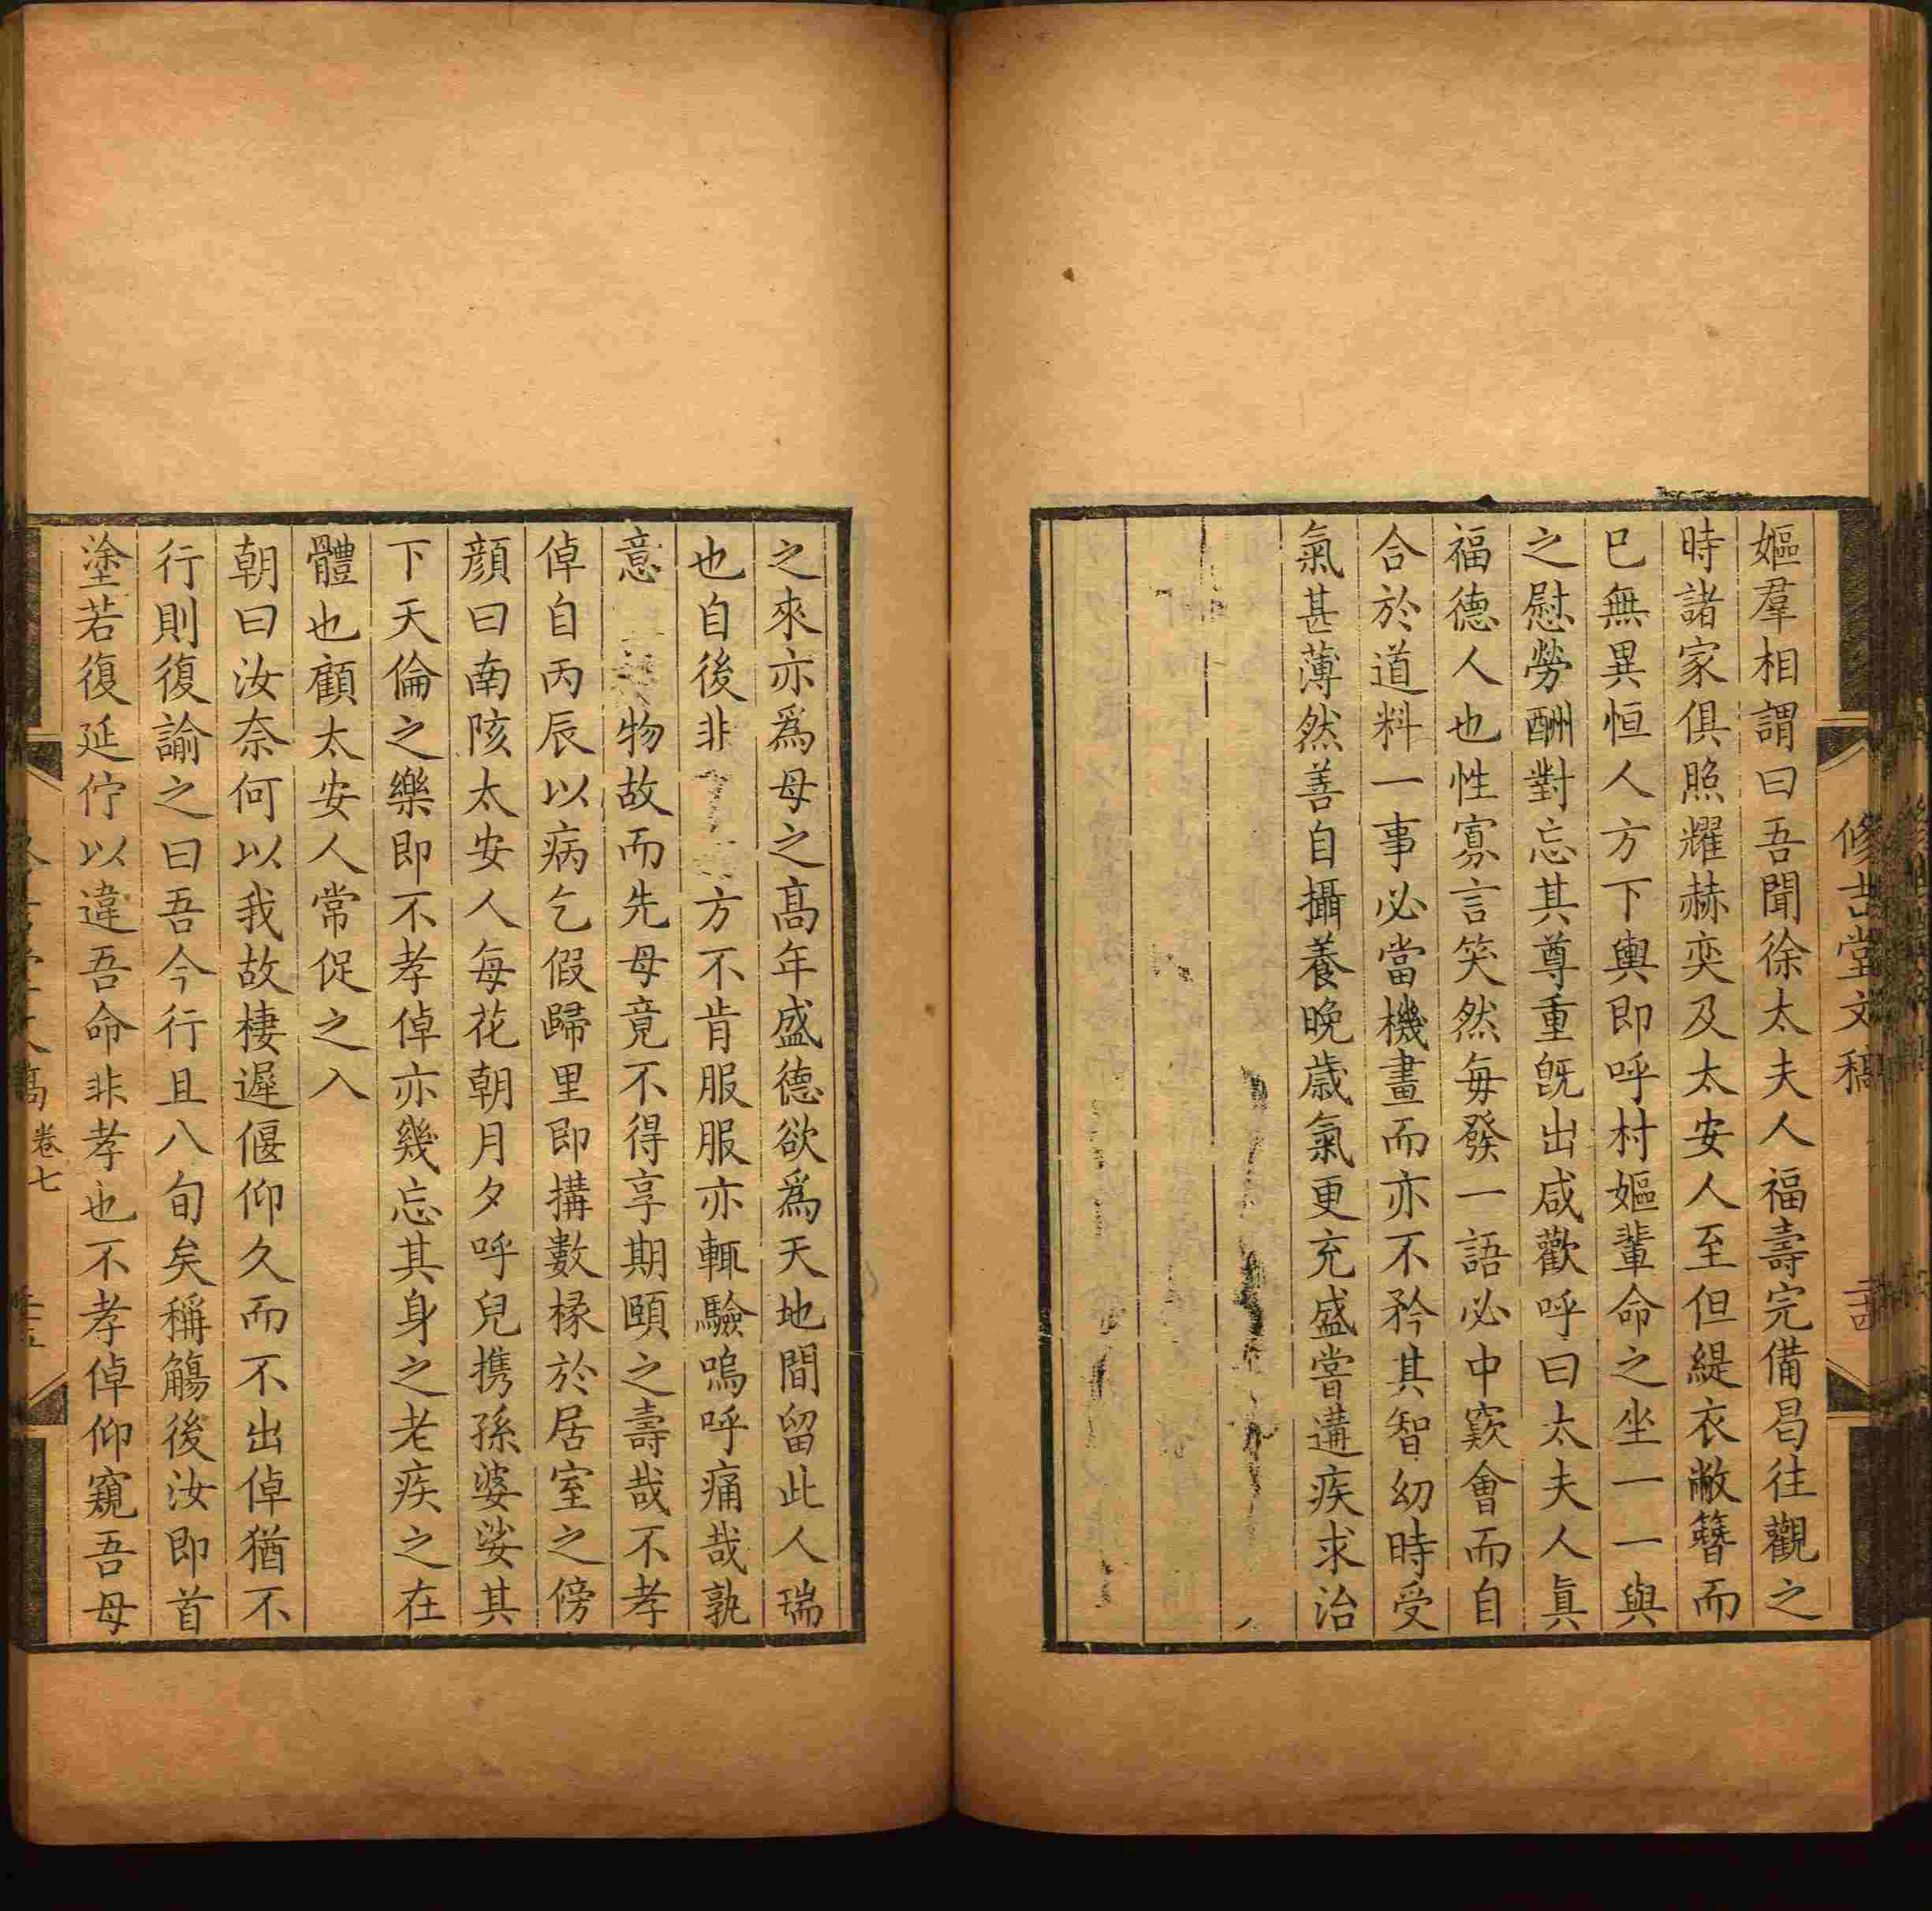 修吉堂文稿
嫗羣相謂曰吾聞徐太夫人福壽完備曷往觀之
時諸家俱照耀赫奕及太安人至但緹衣敝簪而
已無異恒人方下輿即呼村嫗輩命之坐一一與
之慰勞酬對忘其尊重旣出咸歡呼曰太夫人眞
福德人也性寡言笑然每發一語必中窾會而自
合於道料一事必當機畫而亦不矜其智幼時受
氣甚薄然善自攝養晚歲氣更充盛嘗遘疾求治
之來亦爲母之高年盛德欲爲天地間留此人瑞
也自後非方不肯服服亦輒驗嗚呼痛哉孰
意物故而先母竟不得享期頤之壽哉不孝
倬自丙辰以病乞假歸里即搆數椽於居室之傍
顏曰南陔太安人每花朝月夕呼兒携孫婆娑其
下天倫之樂即不孝倬亦幾忘其身之老疾之在
體也顧太安人常促之入
朝曰汝奈何以我故棲遲偃仰久而不出倬猶不
行則復諭之曰吾今行且八旬矣稱觴後汝即首
塗若復延佇以違吾命非孝也不孝倬仰窺吾母
卷七